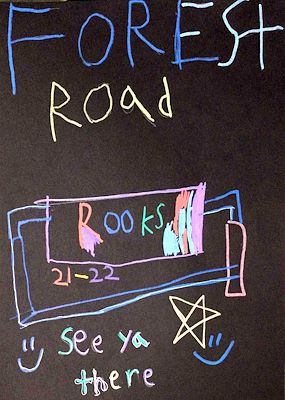 FOREST
ROad
ROOKS
21-22
see ya
there